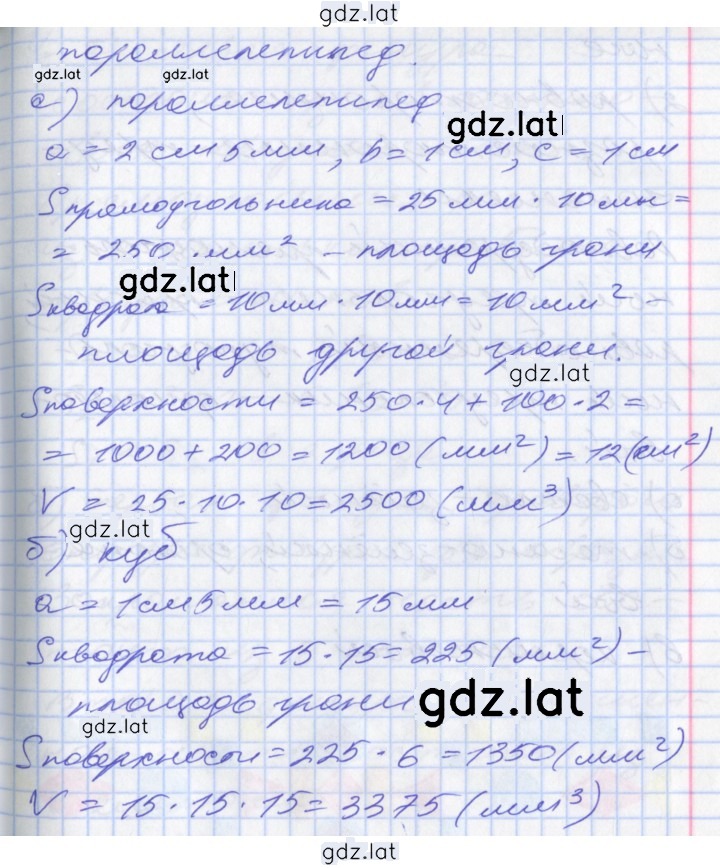 gdz.lat
параллелепипед.
gdz.lat gdz.lat
а) параллелепипед
gdz.lat
a = 2 см 5 мм, b = 1 см, c = 1 см
Sпрямоугольника = 25 мм · 10 мм =
= 250 · мм² – площадь грани
gdz.lat
Sквадрата = 10 мм · 10 мм = 10 мм² –
площадь другой грани.
gdz.lat
Sповерхности = 250 · 4 + 100 · 2 =
= 1000 + 200 = 1200 (мм²) = 12 (см²)
V = 25 · 10 · 10 = 2500 (мм³)
gdz.lat
б) куб
a = 1 см 5 мм = 15 мм
Sквадрата = 15 · 15 = 225 (мм²) –
площадь грани
gdz.lat
gdz.lat
Sповерхности = 225 · 6 = 1350 (мм²)
V = 15 · 15 · 15 = 3375 (мм³)
gdz.lat